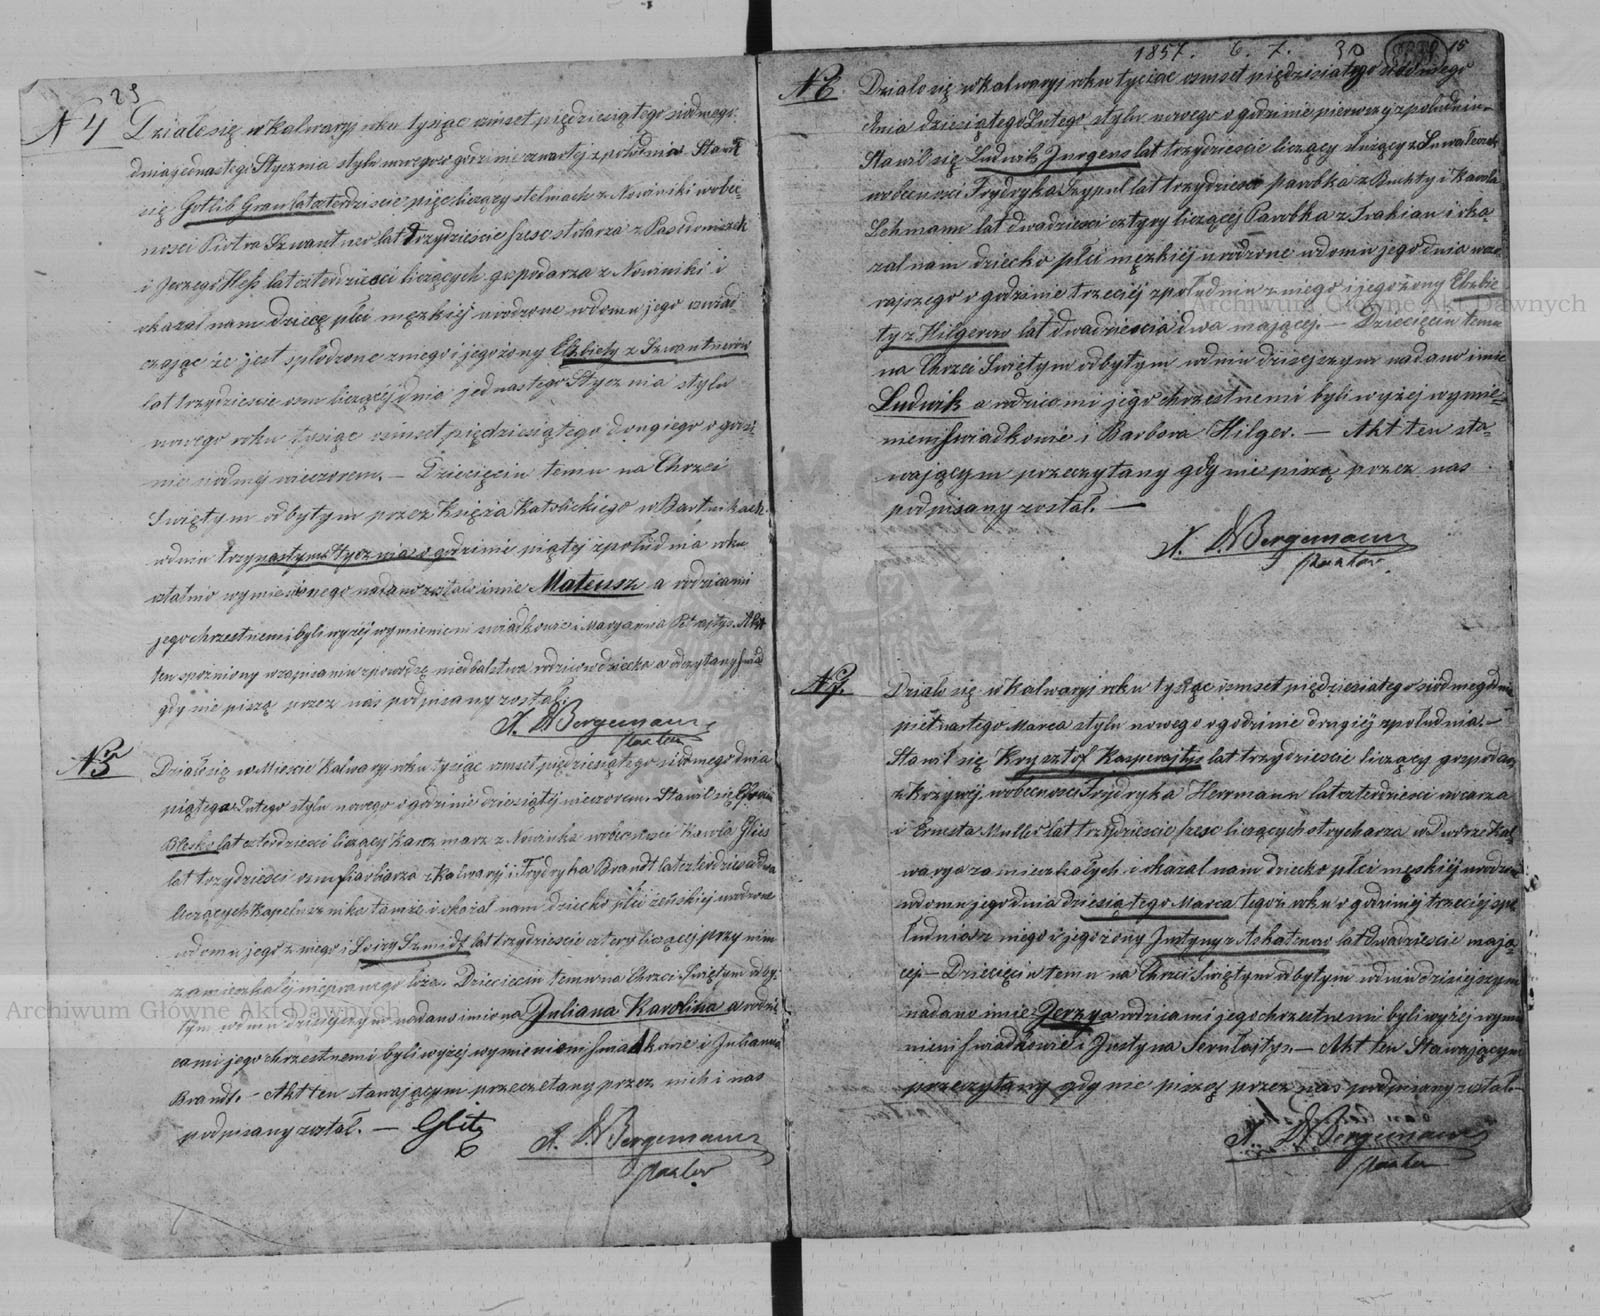 29
N 4 Działo się w Kalwaryi roku tysiąc osmset pięćdziesiątego siodmego
dnia jednastego Stycznia stylu nowego o godzinie czwartej z południa Stawił
się Gotlib Grau lat czterdzieście pięc liczący stelmach z Nowiniki w obec
ności Piotra Szwantner lat trzydzieście szesc stolarza z
i Jerzego Heß lat czterdzieści liczących gospodarza z Nowiniki i
okazał nam dziecę płci męzkiéj urodzone w domu jego oswiad
czając że jest spłodzone z niego i jego żony Elzbiety z Szwantnerów
lat trzydzieście osm liczącéj dnia jednastego Stycznia stylu
nowego roku tysiąc osmset pięćdziesiątego drugiego o godzi
nie siodmej wieczorem. – Dziecięciu temu na Chrzci
Swiętym odbytym przez Księża Katolickiego w Bartnikach
w dniu trzynastym Stycznia o godzinie piątéj z południa roku
ostatnio wymienionego nadano zostało imie Mateusz a rodzicami
jego chrzestnemi byli wyżéj wymienieni swiadkowie i Maryanna Pétrajtys. Akt
ten spóżniony w zapisaniu z powodu niedbalstwa rodziców dziecka a odczytany
gdy nie piszą przez nas podpisany został.
A. W Bergemann
Pastor
N 5 Działo się w Miescie Kalwaryi roku tysiąc osmset pięćdziesiątego siodmego dnia
piątego Lutego stylu nowego o godzinie dziesiątéj wieczorem. Stawił się
Blesko lat czterdzieści liczący Karczmarz z Nowinka w obecności Karola Glies
lat trzydzieści osm farbiarza z Kalwaryi i Frydryka Brandt lat czterdzieści dwa
liczących Kapelusznika tamże i okazał nam dziecko płci żeńskiej urodzone
w domu jego z niego i Loizy Szmidt lat trzydzieście cztery liczącej przy nim
zamieszkałéj nieprawego łoża. Dziecieciu temu na Chrzci Swiętym odby
tym w dniu dzisiejszym nadano imiona Juliana Karolina a rodzi
cami jego chrzestnemi byli wyżej wymienieni swiadkowie i Julianna
Brandt. – Akt ten stawającym przeczetany przez nich i nas
podpisany został. — Glitz
A. W Bergemann
Pastor
1857. 6. 7. 30 15
N 6. Działo się w Kalwaryi roku tysiąc osmset pięćdziesiątego siodmego
dnia dziesiątego Lutego stylu nowego o godzinie pierwszy z południu
Stawił się Ludwik Jurgens lat trzydzieście liczący służący z
w obecności Frydryka Szypul lat trzydzieści parobka z Buchty i Karola
Lehmann lat dwadzieści cztyry liczącéj Parobka z Trakian i oka
zał nam dziecko płci męzkiéj urodzone w domu jego dnia wczo
rajszego o godzinie trzeciéj z południa z niego i jego żony Elzbie
ty z Hilgerow lat dwadzieścia dwa mającej. – Dziecięciu temu
na Chrzci Swiętym odbytym w dniu dzisejszym nadano imie
Ludwik a rodzicami jego chrzestnemi byli wyżej wymie-
nieni swiadkowie i Barbara Hilger. — Akt ten sta-
wającym przeczytany gdy nie piszą przez nas
podpisany został. —
A. W Bergemann
Pastor
N 7. Działo się w Kalwaryi roku tysiąc osmset pięćdziesiatego siódmego dnia
piętnastego Marca stylu nowego o godzinie drugiéj z południa. –
Stawił się Krysztof Kasperajtys lat trzydzieście liczący gospodarz
z Krzywéj w obecności Frydryka Herrmann lat czterdzieści owczarza
i Ernesta Muller lat trzydzieście szesc liczących strycharza w Dworze Kal
warya zamieszkałych i okazał nam dziecko płci męskiéj urodzone
w domu jego dnia dziesiątego Marca tegoż roku o godzinie trzeciéj z po
łudnia z niego i jego żony Justyny z Askatenow lat dwadzieście mają-
céj. – Dziecięciu temu na Chrzci Swiętym odbytym w dniu dzisiejszym
nadano imie Jerzy a rodzicami jego chrzestnemi byli wyżéj wymie
nieni swiadkowie i Justyna Serułajtys. – Akt ten Stawającym
przeczytany gdy nie piszą przez nas podpisany został. –
A. W Bergemann
Pastor
Archiwum Główne Akt Dawnych
Archiwum Główne Akt Dawnych